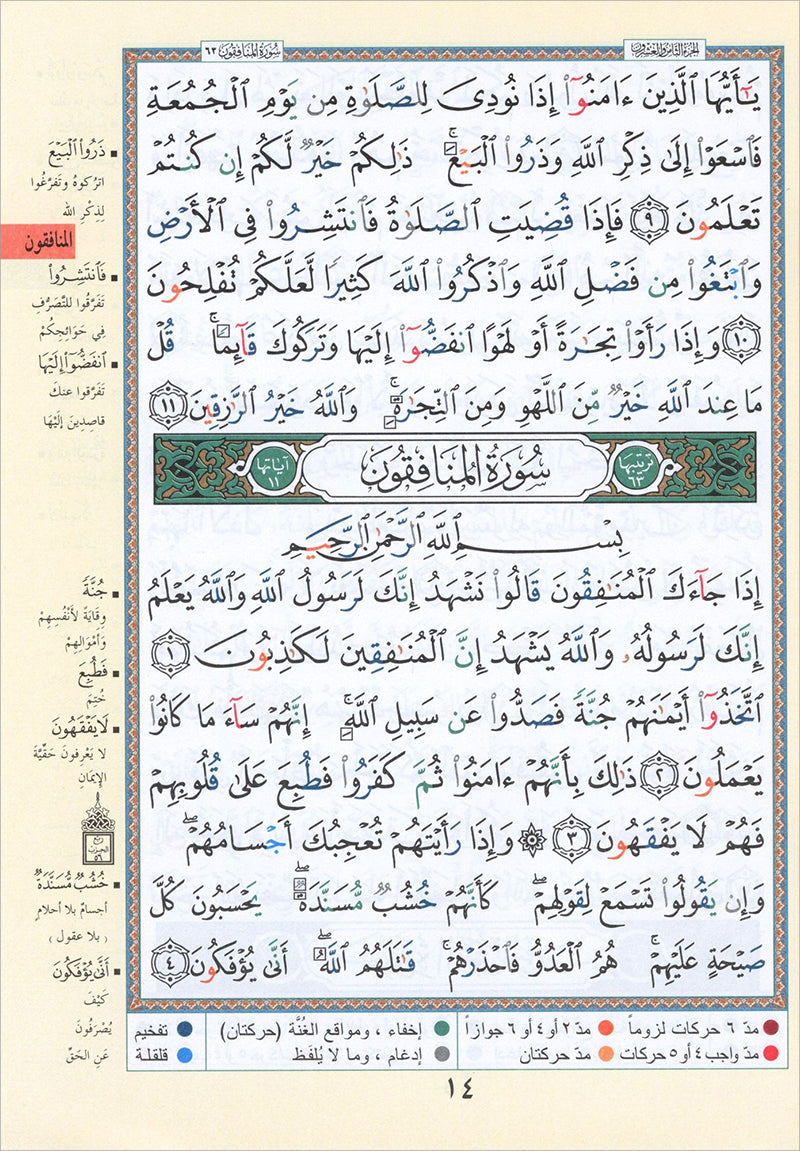 سُورَةُ المُنَافِقُونَ ٦٣
الجزء الثامن والعشرون
يَٰٓأَيُّهَا ٱلَّذِينَ ءَامَنُوٓا۟ إِذَا نُودِىَ لِلصَّلَوٰةِ مِن يَوْمِ ٱلْجُمُعَةِ
فَٱسْعَوْا۟ إِلَىٰ ذِكْرِ ٱللَّهِ وَذَرُوا۟ ٱلْبَيْعَ ۚ ذَٰلِكُمْ خَيْرٌ لَّكُمْ إِن كُنتُمْ
تَعْلَمُونَ ٩ فَإِذَا قُضِيَتِ ٱلصَّلَوٰةُ فَٱنتَشِرُوا۟ فِى ٱلْأَرْضِ
وَٱبْتَغُوا۟ مِن فَضْلِ ٱللَّهِ وَٱذْكُرُوا۟ ٱللَّهَ كَثِيرًا لَّعَلَّكُمْ تُفْلِحُونَ
١٠ وَإِذَا رَأَوْا۟ تِجَٰرَةً أَوْ لَهْوًا ٱنفَضُّوٓا۟ إِلَيْهَا وَتَرَكُوكَ قَآئِمًا ۚ قُلْ
مَا عِندَ ٱللَّهِ خَيْرٌ مِّنَ ٱللَّهْوِ وَمِنَ ٱلتِّجَٰرَةِ ۚ وَٱللَّهُ خَيْرُ ٱلرَّٰزِقِينَ ١١
ترتيبها ٦٣ سُورَةُ المُنَافِقُونَ آياتها ١١
بِسْمِ ٱللَّهِ ٱلرَّحْمَٰنِ ٱلرَّحِيمِ
إِذَا جَآءَكَ ٱلْمُنَٰفِقُونَ قَالُوا۟ نَشْهَدُ إِنَّكَ لَرَسُولُ ٱللَّهِ وَٱللَّهُ يَعْلَمُ
إِنَّكَ لَرَسُولُهُۥ وَٱللَّهُ يَشْهَدُ إِنَّ ٱلْمُنَٰفِقِينَ لَكَٰذِبُونَ ١
ٱتَّخَذُوٓا۟ أَيْمَٰنَهُمْ جُنَّةً فَصَدُّوا۟ عَن سَبِيلِ ٱللَّهِ ۚ إِنَّهُمْ سَآءَ مَا كَانُوا۟
يَعْمَلُونَ ٢ ذَٰلِكَ بِأَنَّهُمْ ءَامَنُوا۟ ثُمَّ كَفَرُوا۟ فَطُبِعَ عَلَىٰ قُلُوبِهِمْ
فَهُمْ لَا يَفْقَهُونَ ٣ ۞ وَإِذَا رَأَيْتَهُمْ تُعْجِبُكَ أَجْسَامُهُمْ ۖ
وَإِن يَقُولُوا۟ تَسْمَعْ لِقَوْلِهِمْ ۖ كَأَنَّهُمْ خُشُبٌ مُّسَنَّدَةٌ ۖ يَحْسَبُونَ كُلَّ
صَيْحَةٍ عَلَيْهِمْ ۚ هُمُ ٱلْعَدُوُّ فَٱحْذَرْهُمْ ۚ قَٰتَلَهُمُ ٱللَّهُ ۖ أَنَّىٰ يُؤْفَكُونَ ٤
ذَرُوا۟ ٱلْبَيْعَ
اتركوهُ وتَفَرَّغُوا
لِذِكْرِ الله
المنافقون
فَٱنتَشِرُوا۟
تَفَرَّقُوا للتَّصَرُّفِ
فِي حَوَائِجِكُمْ
ٱنفَضُّوٓا۟ إِلَيْهَا
تَفَرَّقوا عنكَ
قاصِدِينَ إِلَيْهَا
جُنَّةً
وِقَايَةً لأَنْفُسِهِمْ
وأَمْوَالِهِمْ
فَطُبِعَ
خُتِمَ
لَا يَفْقَهُونَ
لا يَعْرِفونَ حَقِّيَّةَ
الإيمَانِ
ربع
الحزب
٥٦
خُشُبٌ مُّسَنَّدَةٌ
أجسامٌ بلا أحلامٍ
( بلا عقول )
أَنَّىٰ يُؤْفَكُونَ
كَيْفَ
يُصْرَفُونَ
عَنِ الحَقِّ
مدّ ٦ حركات لزوماً مدّ ٢ أو ٤ أو ٦ جوازاً
مدّ واجب ٤ أو ٥ حركات مدّ حركتان
إخفاء ، ومواقع الغُنَّة (حركتان)
إدغام ، وما لا يُلفَظ
تفخيم
قلقلة
١٤